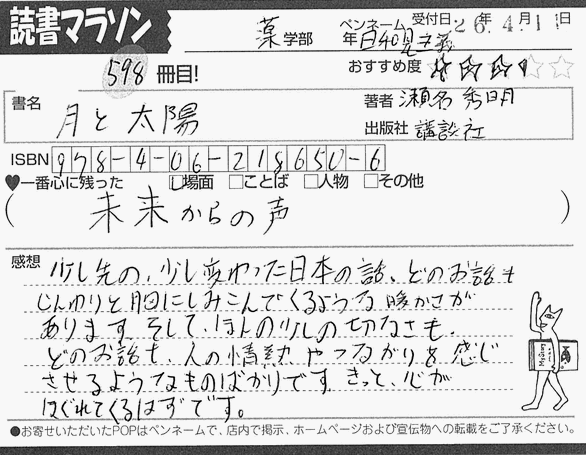 読書マラソン
薬 学部 年
ペンネーム
受付日 26年4月11日
598 冊目!
おすすめ度
書名 月と太陽
著者 瀬名秀明
出版社 講談社
ISBN 978-4-06-218650-6
♥一番心に残った □場面 □ことば □人物 □その他
(未来からの声)
感想 少し先の、少し変わった日本の話、どのお話も
じんわりと胸にしみこんでくるような暖かさが
あります そして、ほんの少しの切なさも。
どのお話も、人の情熱やつながりを感じ
させるようなものばかりです きっと、心が
ほぐれてくるはずです。
Mystery
●お寄せいただいたPOPはペンネームで、店内で掲示、ホームページおよび宣伝物への転載をご了承ください。